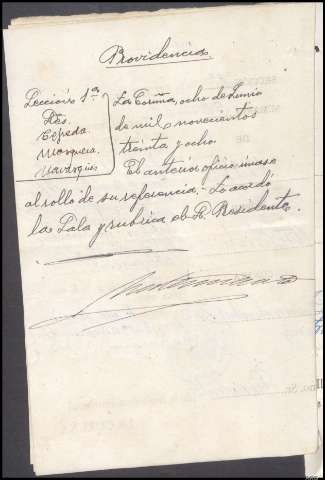 Providencia
Sección 1ª
Srs.
Cepeda
La Coruña, ocho de Junio
de mil novecientos
treinta y ocho.
El anterior oficio únase
al rollo de su referencia.- Lo acordó
la Sala y rubrica el Sr. Presidente.